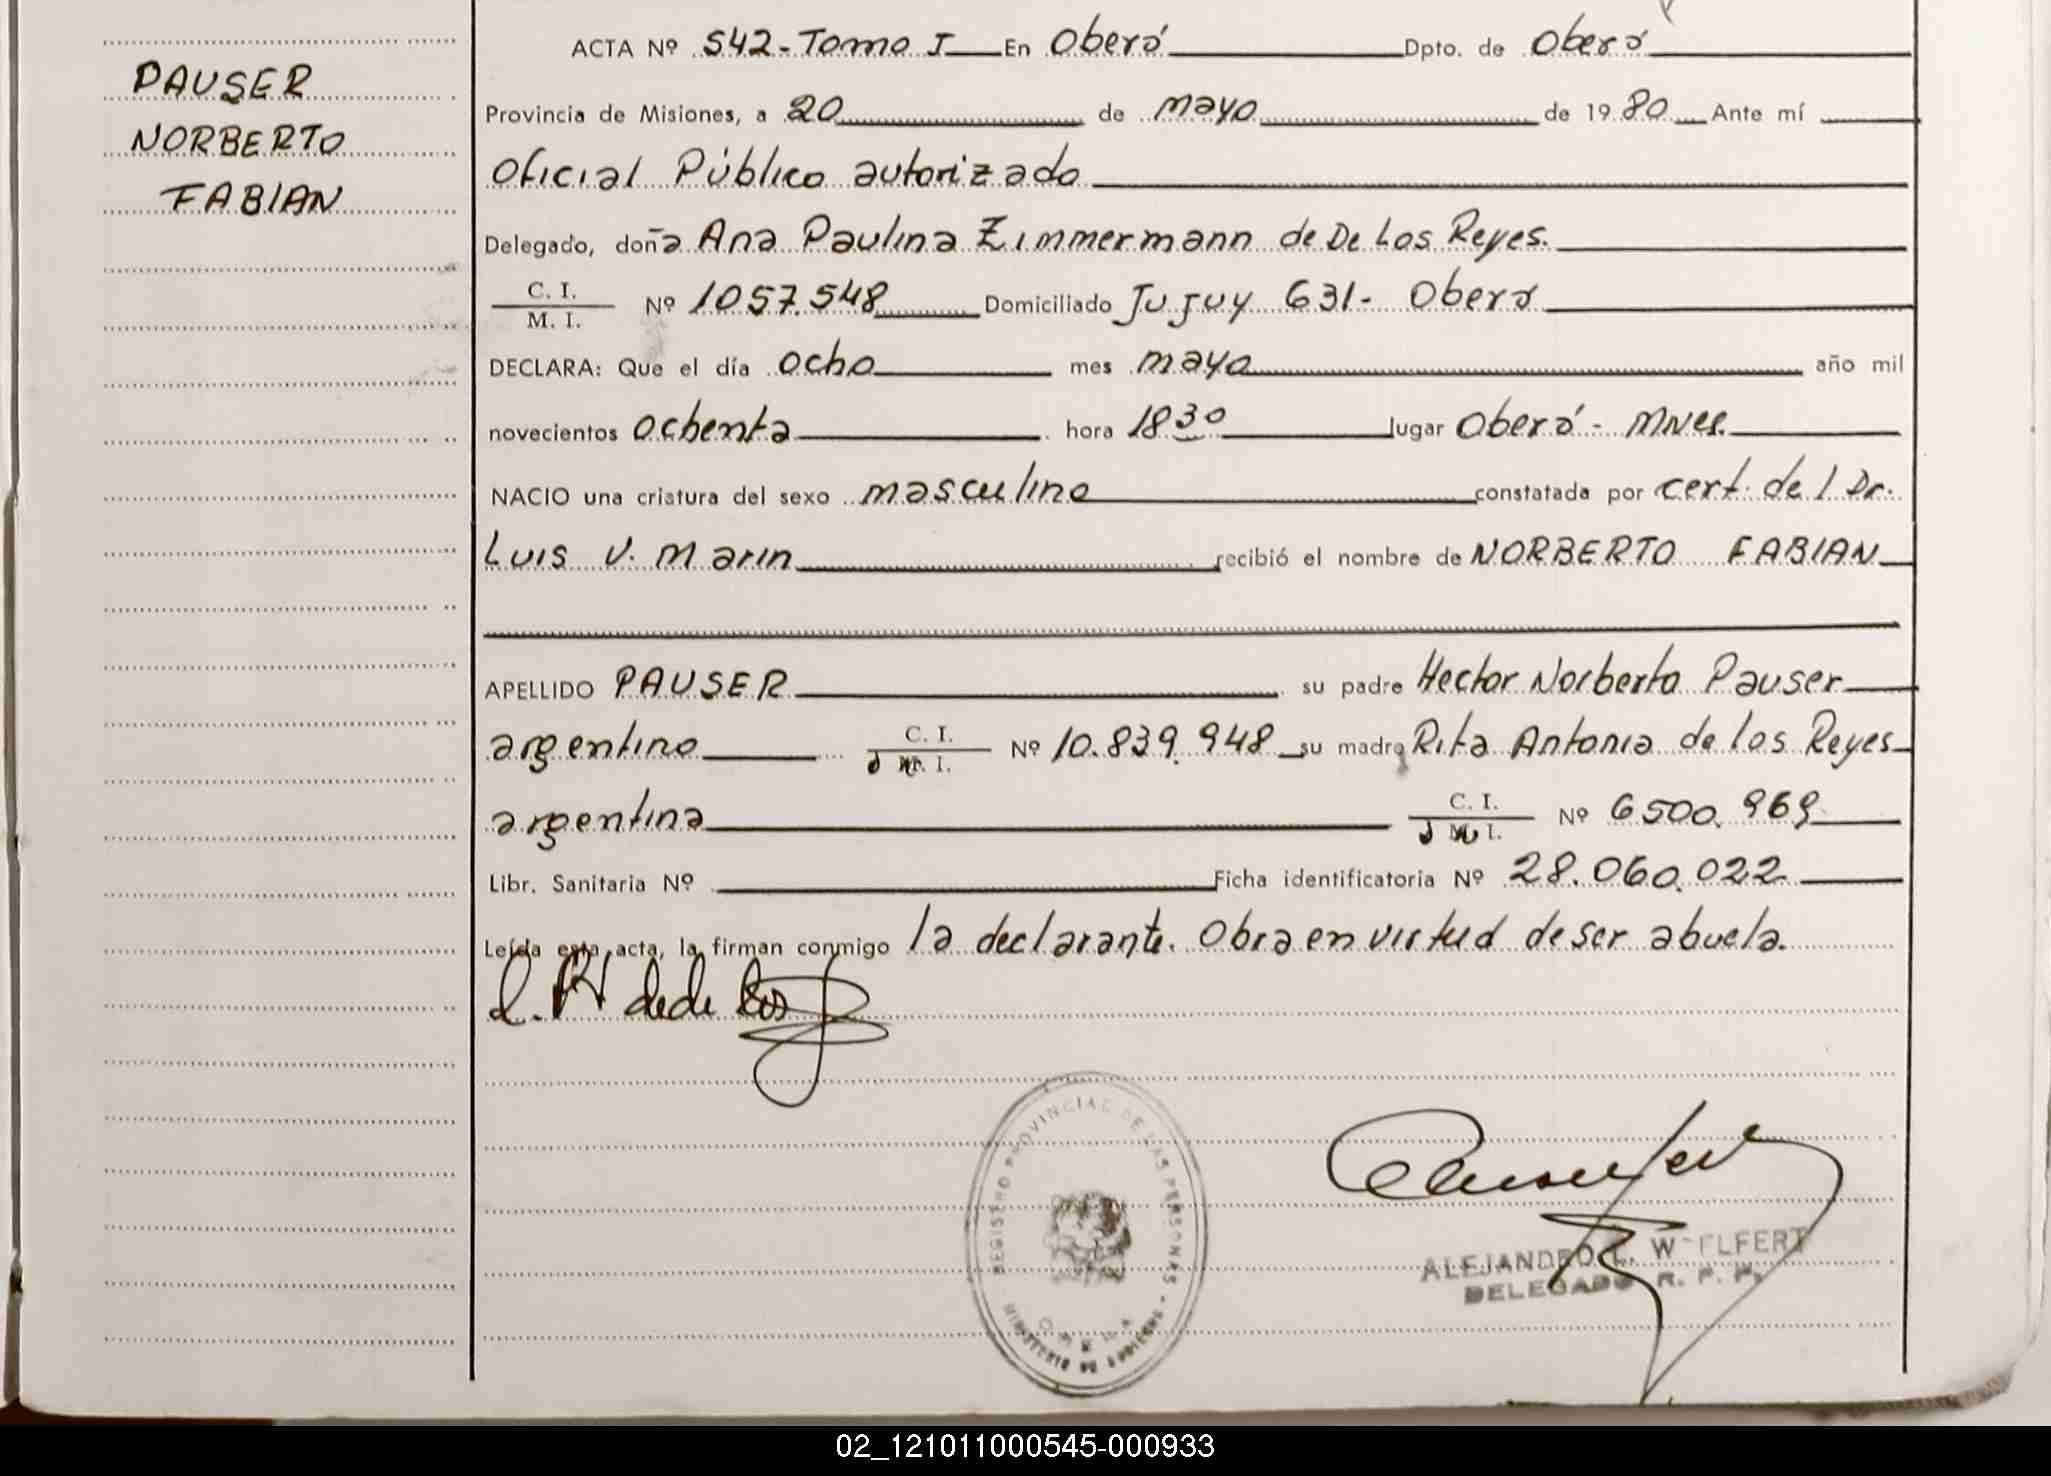 PAUSER
NORBERTO
FABIAN
ACTA Nº 542-Tomo I En Oberá Dpto. de Oberá
Provincia de Misiones, a 20 de mayo de 1980 Ante mí
Oficial Público autorizado
Delegado, doña Ana Paulina Zimmermann de De Los Reyes.
C. I.
M. I. Nº 1057.548 Domiciliado Jujuy 631- Oberá
DECLARA: Que el día ocho mes mayo año mil
novecientos ochenta hora 18 30 lugar Oberá - Mnes.
NACIO una criatura del sexo masculino constatada por cert. del Dr.
Luis V. Marin recibió el nombre de NORBERTO FABIAN
APELLIDO PAUSER su padre Hector Norberto Pauser
argentino C. I. Nº 10.839.948 su madre Rita Antonia de los Reyes
argentina C. I. Nº 6500.969
Libr. Sanitaria Nº Ficha identificatoria Nº 28.060.022
Leída esta acta, la firman conmigo la declarante. Obra en virtud de ser abuela.
REGISTRO PROVINCIAL DE LAS PERSONAS - MINISTERIO DE GOBIERNO
ALEJANDRO L.
DELEGADO R. P. P.
02_121011000545-000933